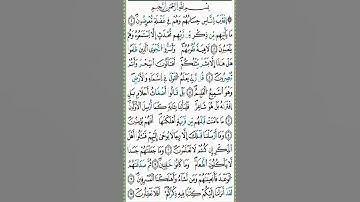 بِسْمِ اللَّهِ الرَّحْمَٰنِ الرَّحِيمِ
اقْتَرَبَ لِلنَّاسِ حِسَابُهُمْ وَهُمْ فِي غَفْلَةٍ مُّعْرِضُونَ ١
مَا يَأْتِيهِم مِّن ذِكْرٍ مِّن رَّبِّهِم مُّحْدَثٍ إِلَّا اسْتَمَعُوهُ وَهُمْ
يَلْعَبُونَ ٢ لَاهِيَةً قُلُوبُهُمْ وَأَسَرُّوا النَّجْوَى الَّذِينَ
ظَلَمُوا هَلْ هَٰذَا إِلَّا بَشَرٌ مِّثْلُكُمْ أَفَتَأْتُونَ السِّحْرَ وَأَنتُمْ
تُبْصِرُونَ ٣ قَالَ رَبِّي يَعْلَمُ الْقَوْلَ فِي السَّمَاءِ وَالْأَرْضِ
وَهُوَ السَّمِيعُ الْعَلِيمُ ٤ بَلْ قَالُوا أَضْغَاثُ أَحْلَامٍ بَلِ
افْتَرَاهُ بَلْ هُوَ شَاعِرٌ فَلْيَأْتِنَا بِآيَةٍ كَمَا أُرْسِلَ الْأَوَّلُونَ ٥
مَا آمَنَتْ قَبْلَهُم مِّن قَرْيَةٍ أَهْلَكْنَاهَا أَفَهُمْ يُؤْمِنُونَ ٦
وَمَا أَرْسَلْنَا قَبْلَكَ إِلَّا رِجَالًا نُّوحِي إِلَيْهِمْ فَاسْأَلُوا أَهْلَ
الذِّكْرِ إِن كُنتُمْ لَا تَعْلَمُونَ ٧ وَمَا جَعَلْنَاهُمْ جَسَدًا
لَّا يَأْكُلُونَ الطَّعَامَ وَمَا كَانُوا خَالِدِينَ ٨ ثُمَّ صَدَقْنَاهُمُ
الْوَعْدَ فَأَنجَيْنَاهُمْ وَمَن نَّشَاءُ وَأَهْلَكْنَا الْمُسْرِفِينَ ٩
لَقَدْ أَنزَلْنَا إِلَيْكُمْ كِتَابًا فِيهِ ذِكْرُكُمْ أَفَلَا تَعْقِلُونَ ١٠